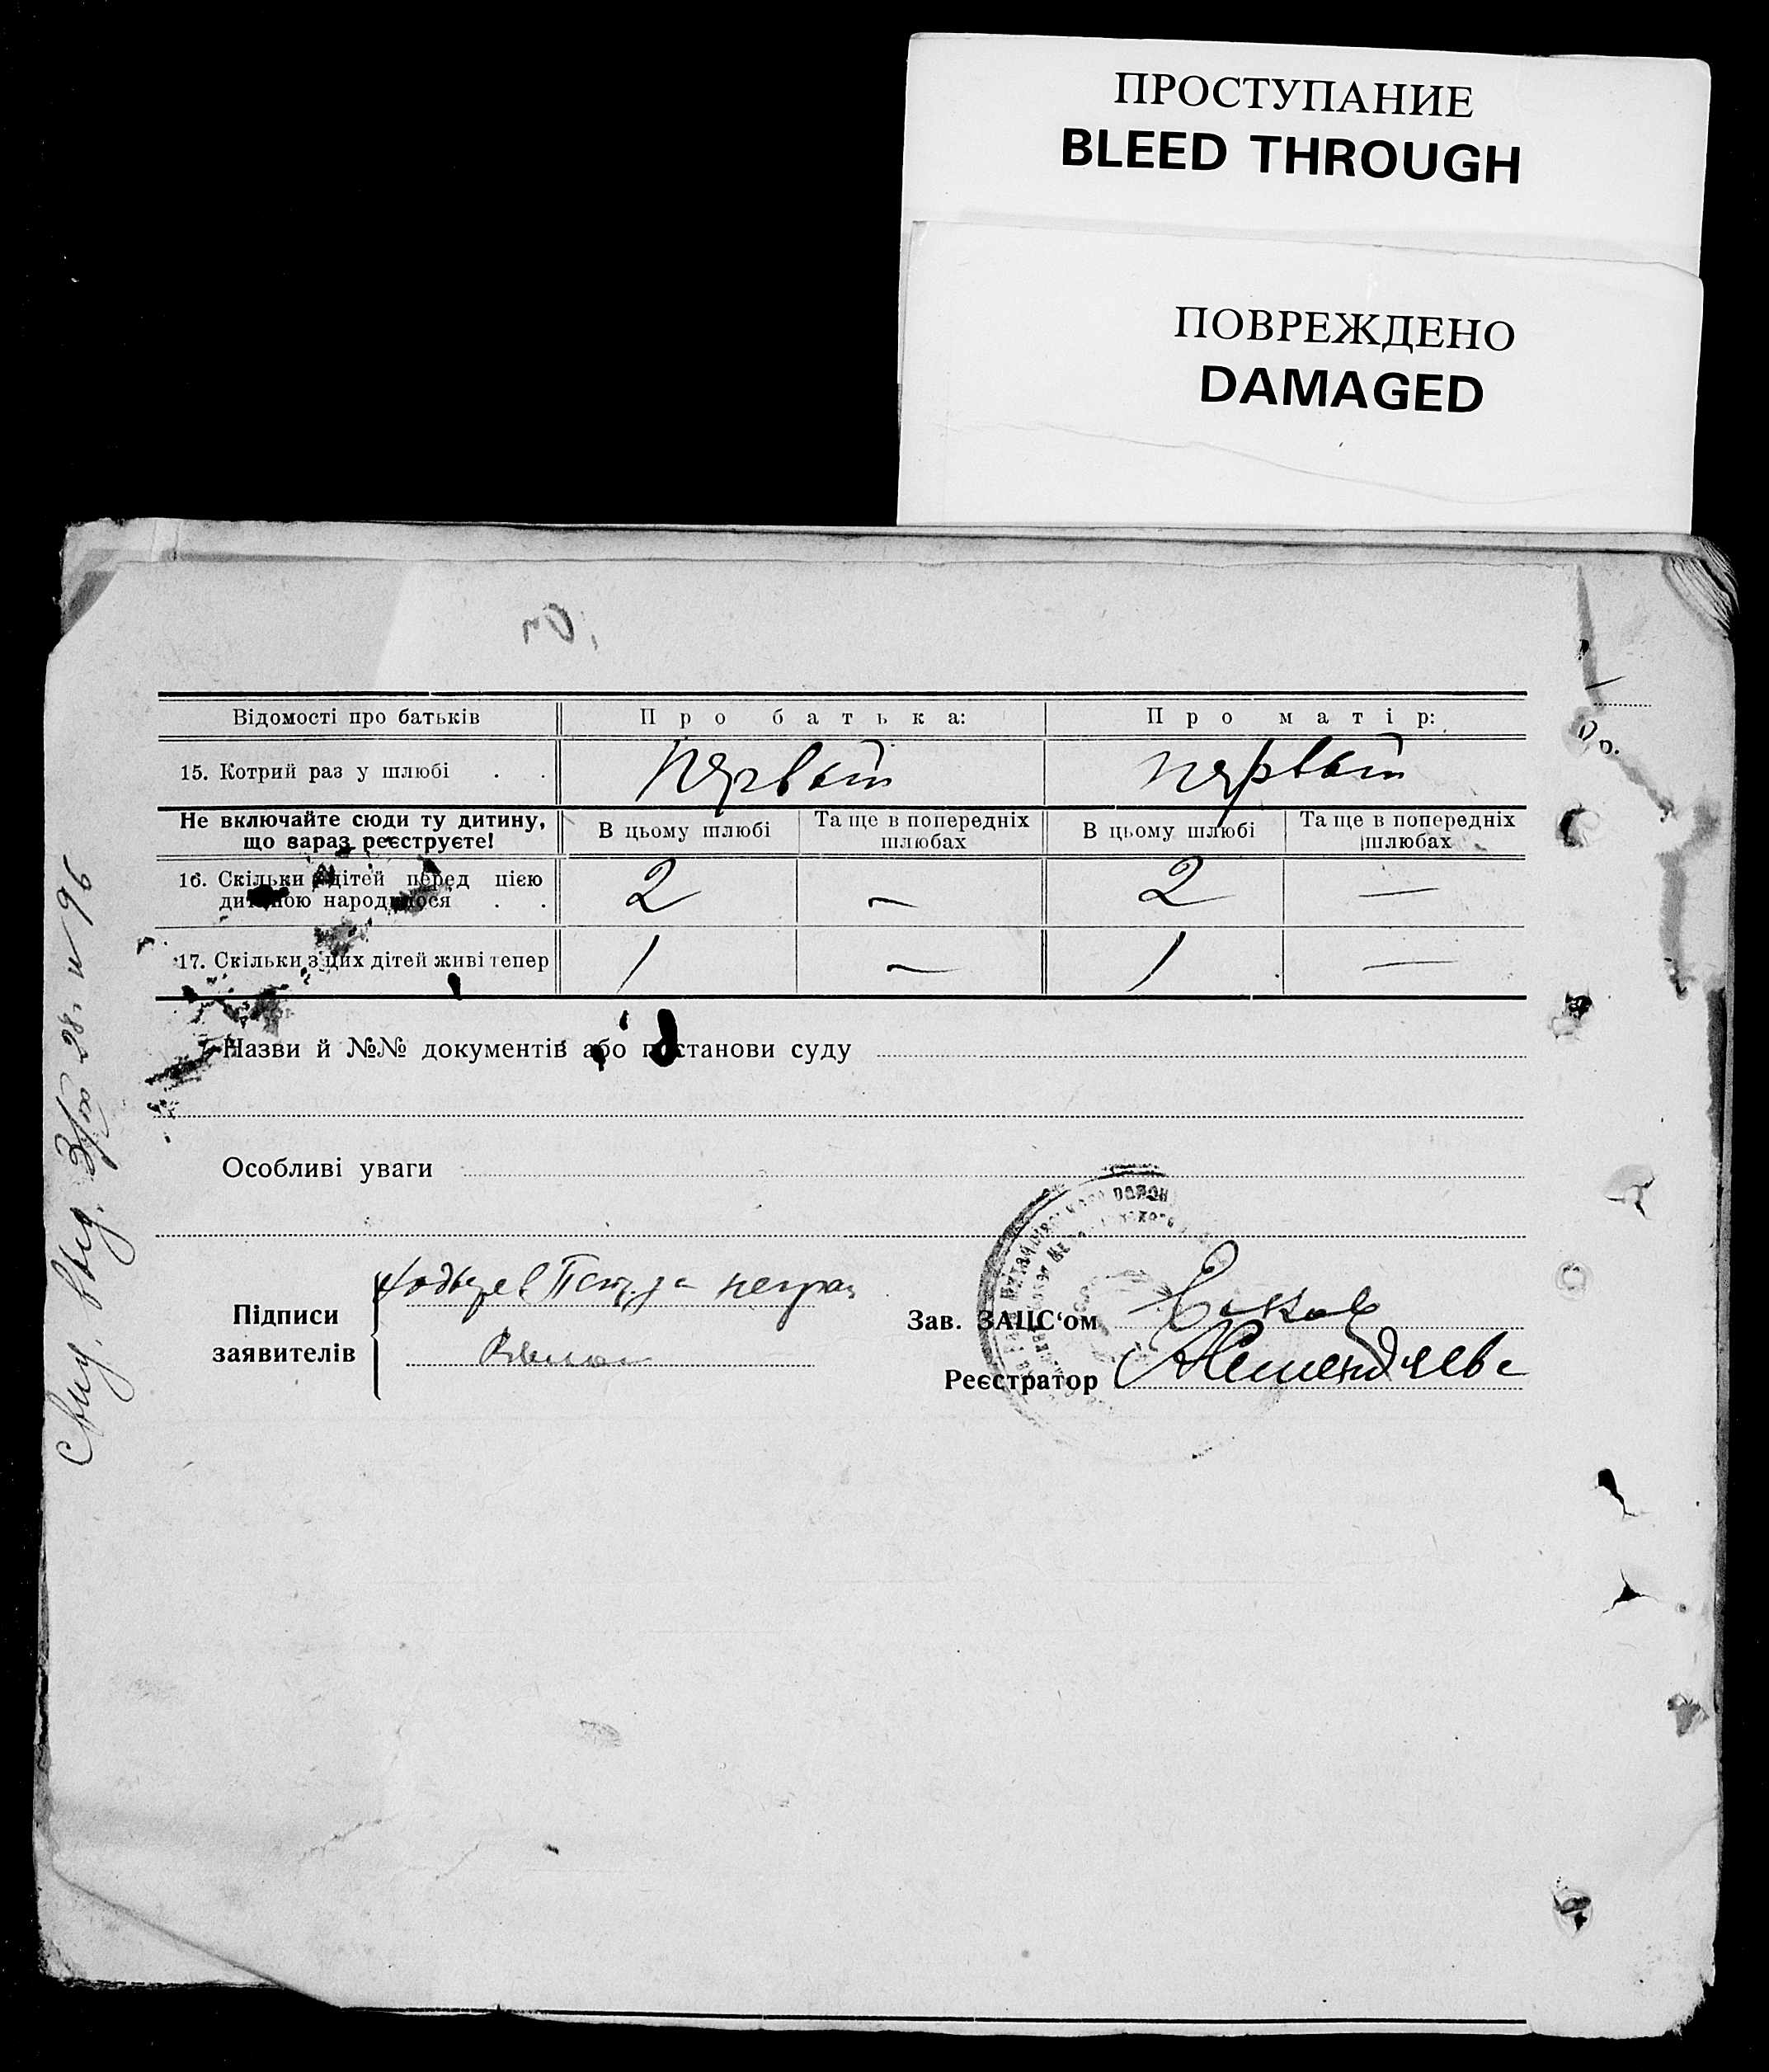 ПРОСТУПАНИЕ
BLEED THROUGH
ПОВРЕЖДЕНО
DAMAGED
Відомості про батьків Про батька: Про матір:
15. Котрий раз у шлюбі . . первый первый
Не включайте сюди ту дитину, що зараз реєструєте! В цьому шлюбі Та ще в попередніх шлюбах В цьому шлюбі Та ще в попередніх шлюбах
16. Скільки дітей перед цією
дитиною народилося . . 2 — 2 —
17. Скільки з цих дітей живі тепер 1 — 1 —
Назви й №№ документів або постанови суду
Особливі уваги
Підписи
заявителів
Зав. ЗАЦС‘ом
Реєстратор
Свид. выд. 28. 96